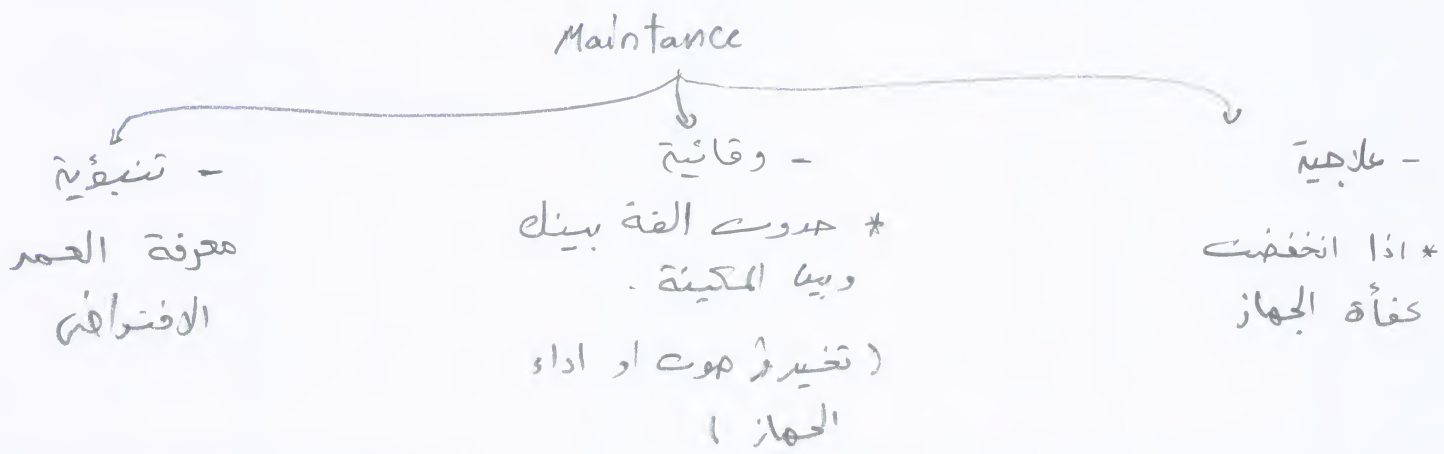 Maintance
- علاجية
* اذا انخفضت
كفأة الجهاز
- وقائية
* حدوث الفة بينك
وبين المكينة .
( تغير في صوت او اداء
الجهاز )
- تنبؤية
معرفة العمر
الافتراضي